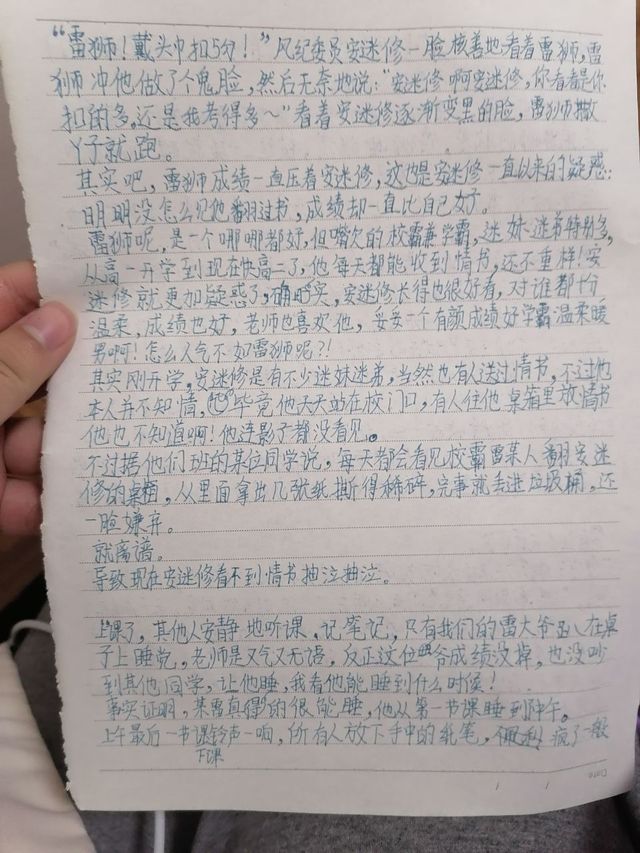 “雷狮！戴头巾扣5分！”风纪委员安迷修一脸核善地看着雷狮，雷
狮冲他做了个鬼脸，然后无奈地说：“安迷修啊安迷修，你看看是你
扣的多，还是我考得多～”看着安迷修逐渐变黑的脸，雷狮撒
丫子就跑。
其实吧，雷狮成绩一直压着安迷修，这也是安迷修一直以来的疑惑：
明明没怎么见他翻过书，成绩却一直比自己好。
雷狮呢，是一个哪哪都好，但嘴欠的校霸兼学霸，迷妹迷弟特别多，
从高一开学到现在快高二了，他每天都能收到情书，还不重样！安
迷修就更加疑惑了，确实，安迷修长得也很好看，对谁都十分
温柔，成绩也好，老师也喜欢他，妥妥一个有颜成绩好学霸温柔暖
男啊！怎么人气不如雷狮呢？！
其实刚开学，安迷修是有不少迷妹迷弟，当然也有人送过情书，不过他
本人并不知情，毕竟他天天站在校门口，有人往他桌箱里放情书
他也不知道啊！他连影子都没看见。
不过据他们班的某位同学说，每天都会看见校霸雷某人翻安迷
修的桌箱，从里面拿出几张纸撕得稀碎，完事就丢进垃圾桶，还
一脸嫌弃。
就离谱。
导致现在安迷修看不到情书抽泣抽泣。
上课了，其他人安静地听课、记笔记，只有我们的雷大爷趴在桌
子上睡觉，老师是又气又无语，反正这位爷成绩没掉，也没吵
到其他同学，让他睡，我看他能睡到什么时候！
事实证明，某雷真的很能睡，他从第一节课睡到中午。
上午最后一节课下课铃声一响，所有人放下手中的纸笔，疯了一般
Date